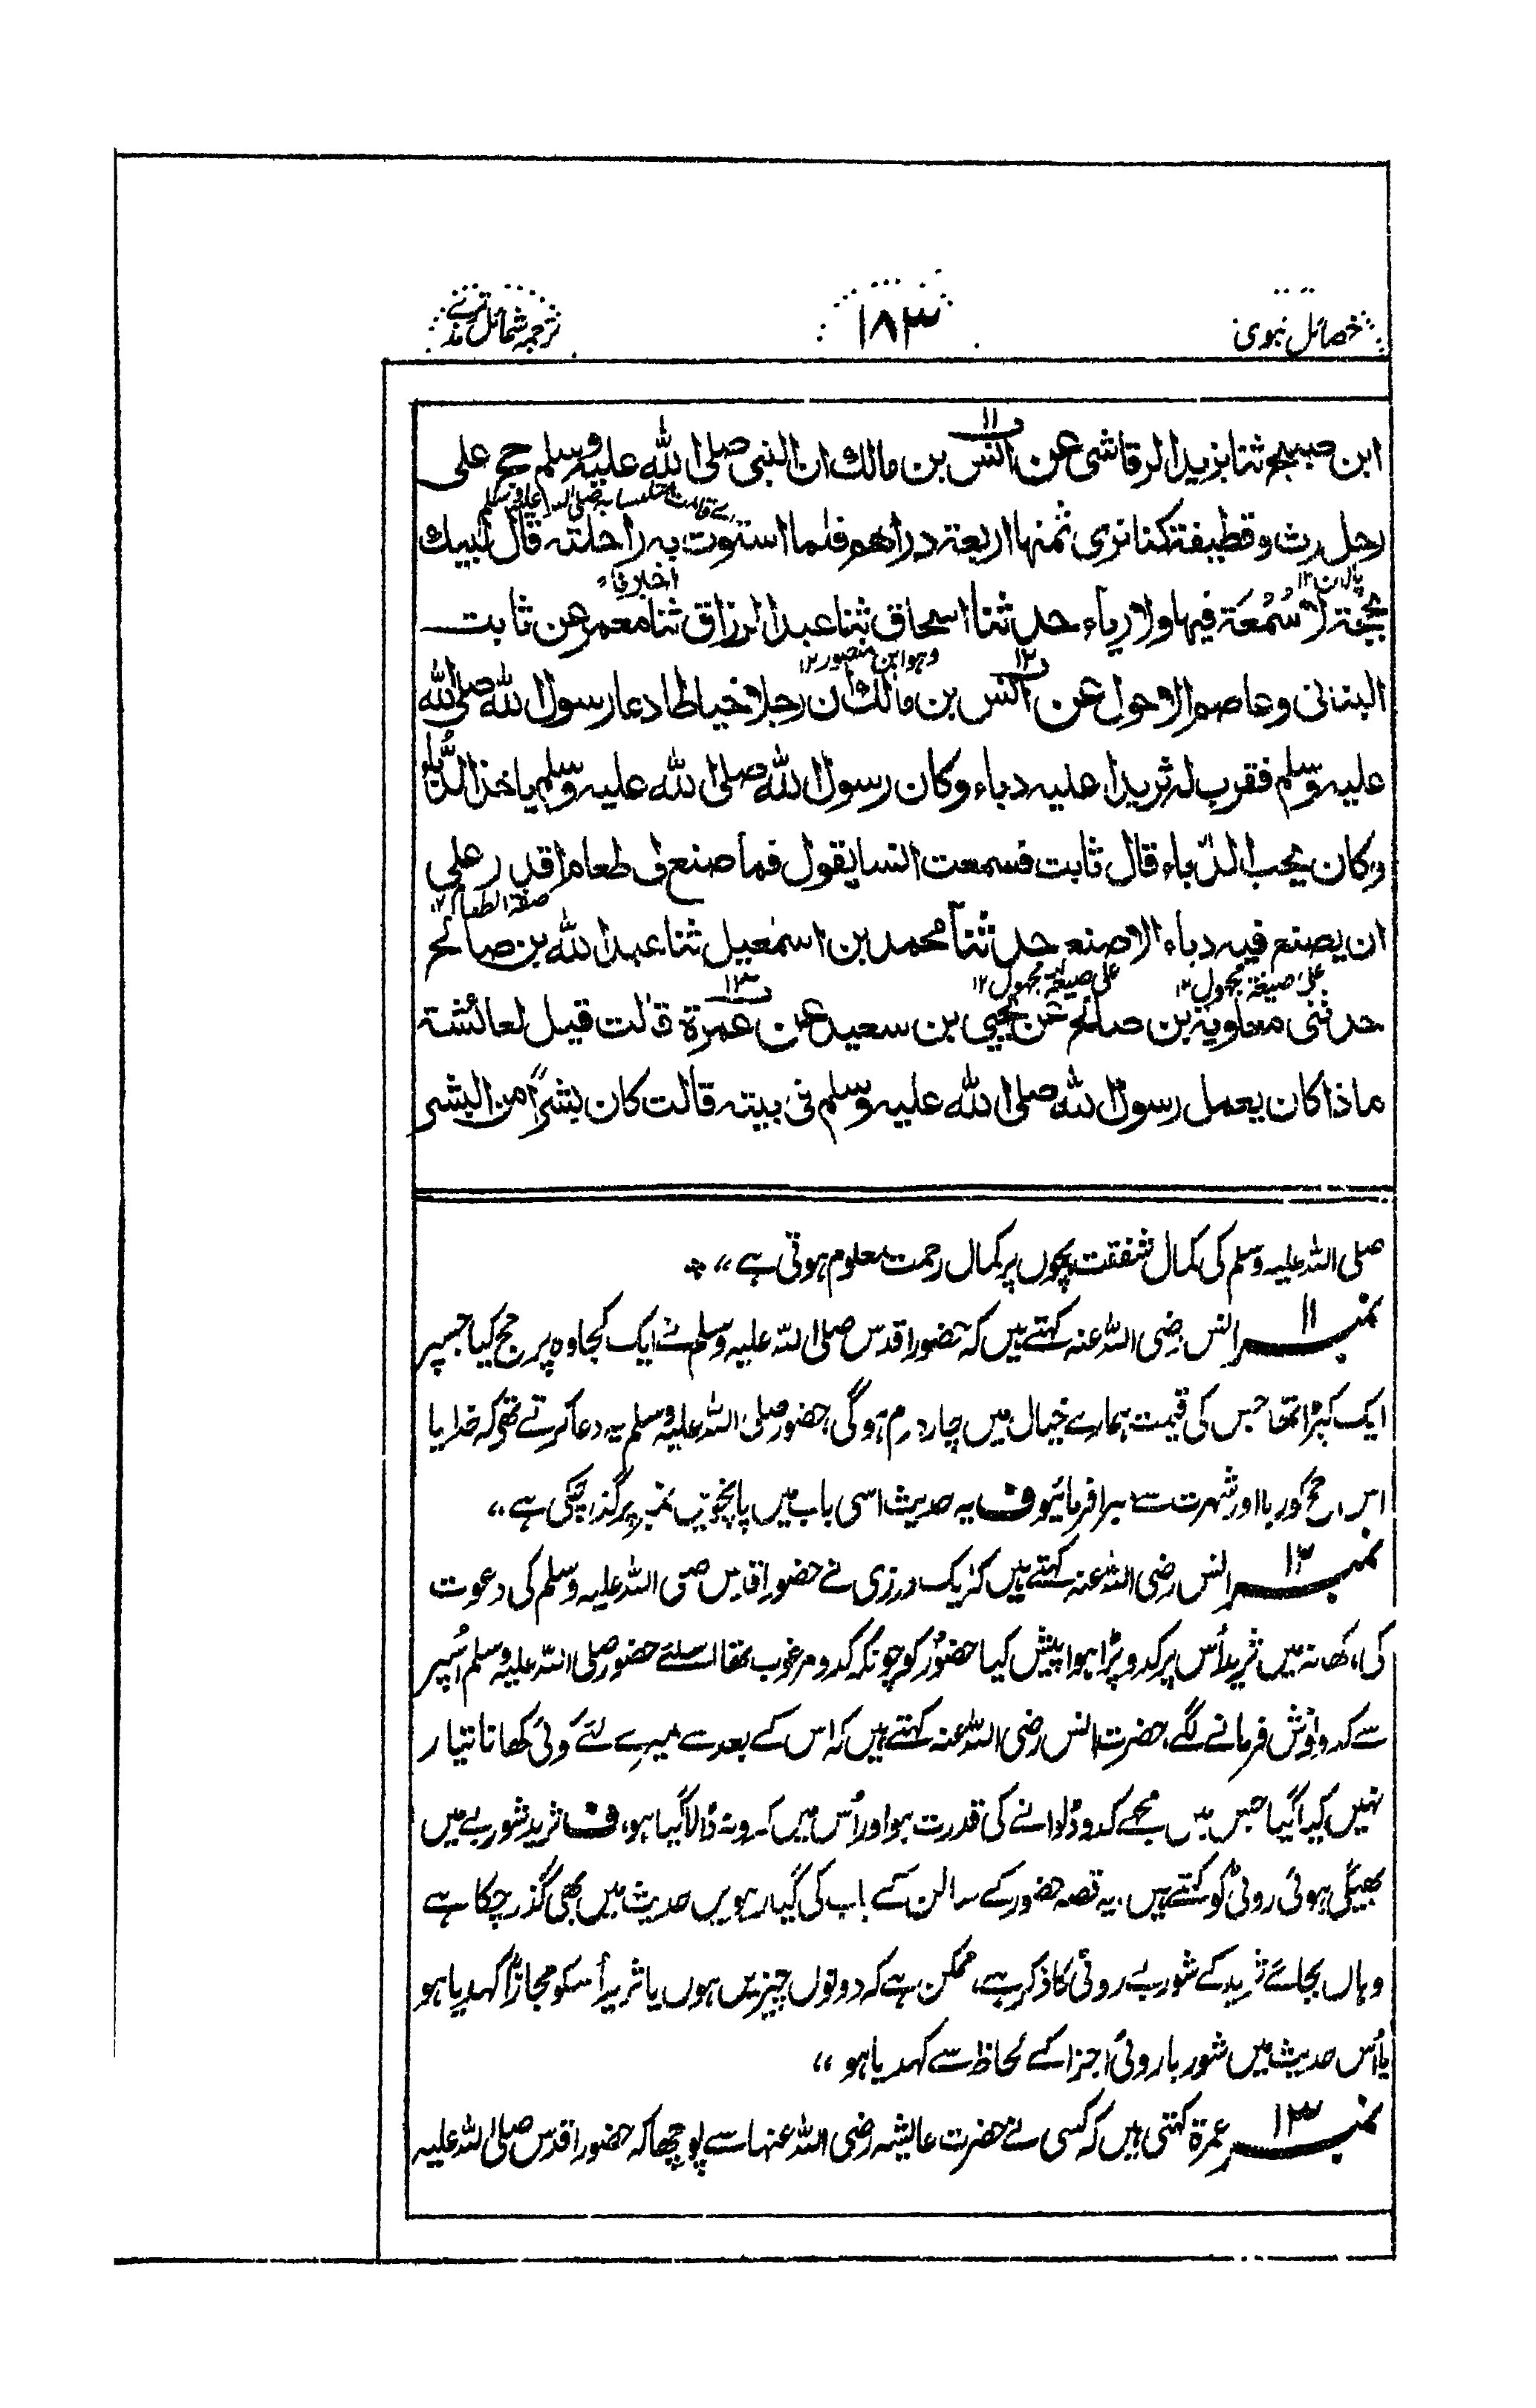 خصائل نبوی
۱۸۳
ترجمہ شمائل ترمذے
ابن صبیح ثنا یزید الرقاشی عن انس بن مالك ان النبی صلی الله علیه وسلم حج علی
۱۱
رحل رث وقطیفة کنا نری ثمنها اربعة دراهم فلما استوت به راحلته قال لبیك
پالان ۱۲
بحجة لا سُمْعَة فیها ولا ریاء حدثنا اسحاق ثنا عبد الرزاق ثنا معمر عن ثابت
وہو ابن منصور ۱۲
۱۲
البنانی وعاصم الاحول عن انس بن مالك ان رجلا خیاطا دعا رسول الله صلی الله
علیه وسلم فقرب له ثریدا علیه دباء وکان رسول الله صلی الله علیه وسلم یاخذ الدُّباء
وکان یحب الدباء قال ثابت فسمعت انسا یقول فما صنع لی طعام اقدر علی
صفة الطعام ۱۲
ان یصنع فیه دباء الا صنع حدثنا محمد بن اسمٰعیل ثنا عبد الله بن صالح
علی صیغة مجہول ۱۲
علی صیغة مجہول ۱۲
۱۳
حدثنی معاویة بن صالح عن یحیی بن سعید عن عمرة قالت قیل لعائشة
ماذا کان یعمل رسول الله صلی الله علیه وسلم فی بیته قالت کان بشرًا من البشر
صلی اللہ علیہ وسلم کی کمال شفقت بچوں پر کمال رحمت معلوم ہوتی ہے ،،
نمبر ۱۱ انس رضی اللہ عنہ کہتے ہیں کہ حضور اقدس صلی اللہ علیہ وسلم نے ایک کجاوہ پر حج کیا جسپر
ایک کپڑا تھا جس کی قیمت ہمارے خیال میں چار درم ہوگی، حضور صلی اللہ علیہ وسلم یہ دعا کرتے تھے کہ خدایا
اس حج کو ریا اور شہرت سے مبرا فرمائیو ف یہ حدیث اسی باب میں پانچویں نمبر پر گذر چکی ہے ،،
نمبر ۱۲ انس رضی اللہ عنہ کہتے ہیں کہ ایک درزی نے حضور اقدس صلی اللہ علیہ وسلم کی دعوت
کی، کھانہ میں ثرید اُس پر کدو پڑا ہوا پیش کیا حضورؐ کو چونکہ کدو مرغوب تھا اسلئے حضور صلی اللہ علیہ وسلم اُسپر
سے کدو نوش فرمانے لگے، حضرت انس رضی اللہ عنہ کہتے ہیں کہ اس کے بعد سے میرے لئے کوئی کھانا تیار
نہیں کیا گیا جس میں مجھے کدو ڈلوانے کی قدرت ہو اور اُس میں کدو نہ ڈالا گیا ہو، ف ثرید شوربے میں
بھیگی ہوئی روٹی کو کہتے ہیں، یہ قصہ حضور کے سالن کے باب کی گیارہویں حدیث میں بھی گذر چکا ہے
وہاں بجائے ثرید کے شوربے روٹی کا ذکر ہے، ممکن ہے کہ دونوں چیزیں ہوں یا ثرید اُسکو مجازاً کہدیا ہو
یا اُس حدیث میں شوربا روٹی اجزا کے لحاظ سے کہدیا ہو ،،
نمبر ۱۳ عمرۃ کہتی ہیں کہ کسی نے حضرت عایشہ رضی اللہ عنہا سے پوچھا کہ حضور اقدس صلی اللہ علیہ